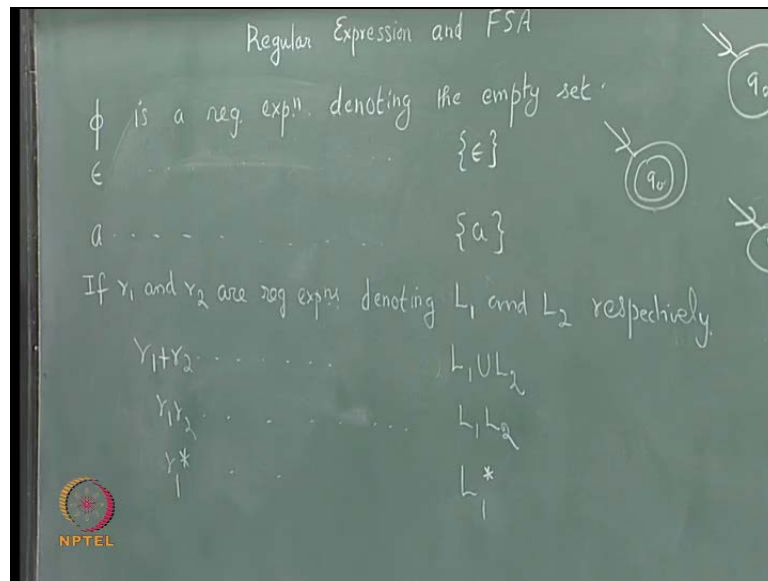 Regular Expression and FSA
ϕ is a reg. expn. denoting the empty set.
ϵ .................... {ϵ}
q0
q0
a. . . . . . . . . {a}
If r1 and r2 are reg expns denoting L1 and L2 respectively.
r1+r2 . . . . . . . L1∪L2
r1r2 . . . . . . . . L1L2
r1* . . . L1*
NPTEL